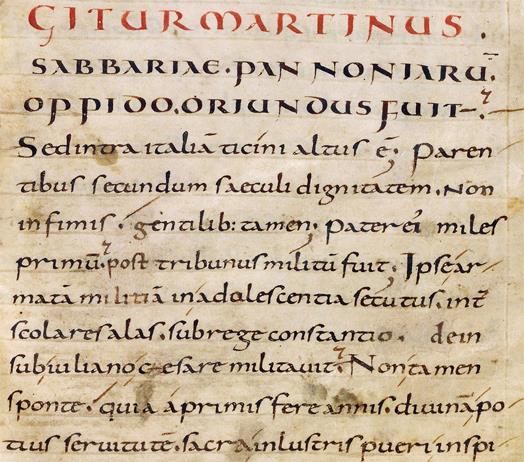 GITUR MARTINUS .
SABBARIAE. PANNONIARŪ.
OPPIDO. ORIUNDUS FUIT.
Sed intra italiā ticini altus ē; Paren
tibus secundum saeculi dignitatem. Non
infimis. gentilib: tamen; Pater ei miles
primū. post tribunus militū fuit; Ipse ar
matā militiā in adolescentia secutus. int
scolares alas. sub rege constantio. dein
sub iuliano caesare militauit. Non tamen
sponte. quia a primis fere annis. diuinā po
tius seruitutē. sacra inlustris pueri inspi